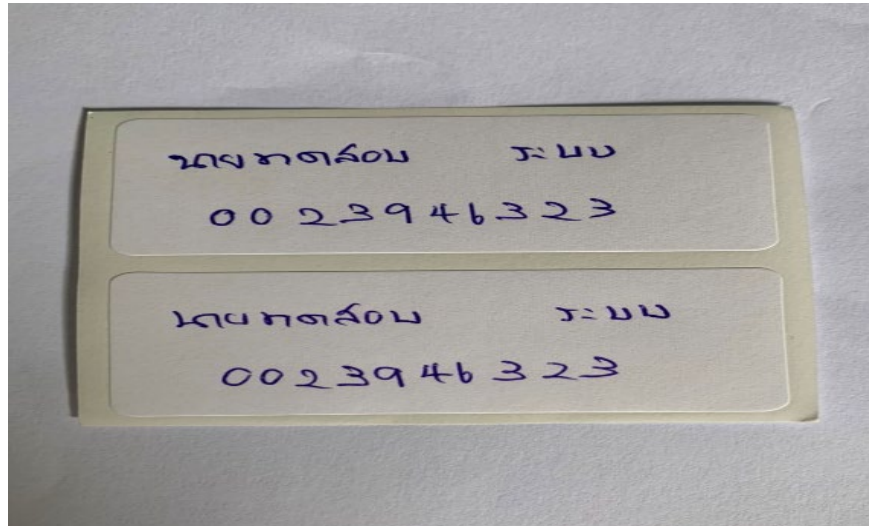 นายทดสอบ ระบบ
0023946323
นายทดสอบ ระบบ
0023946323